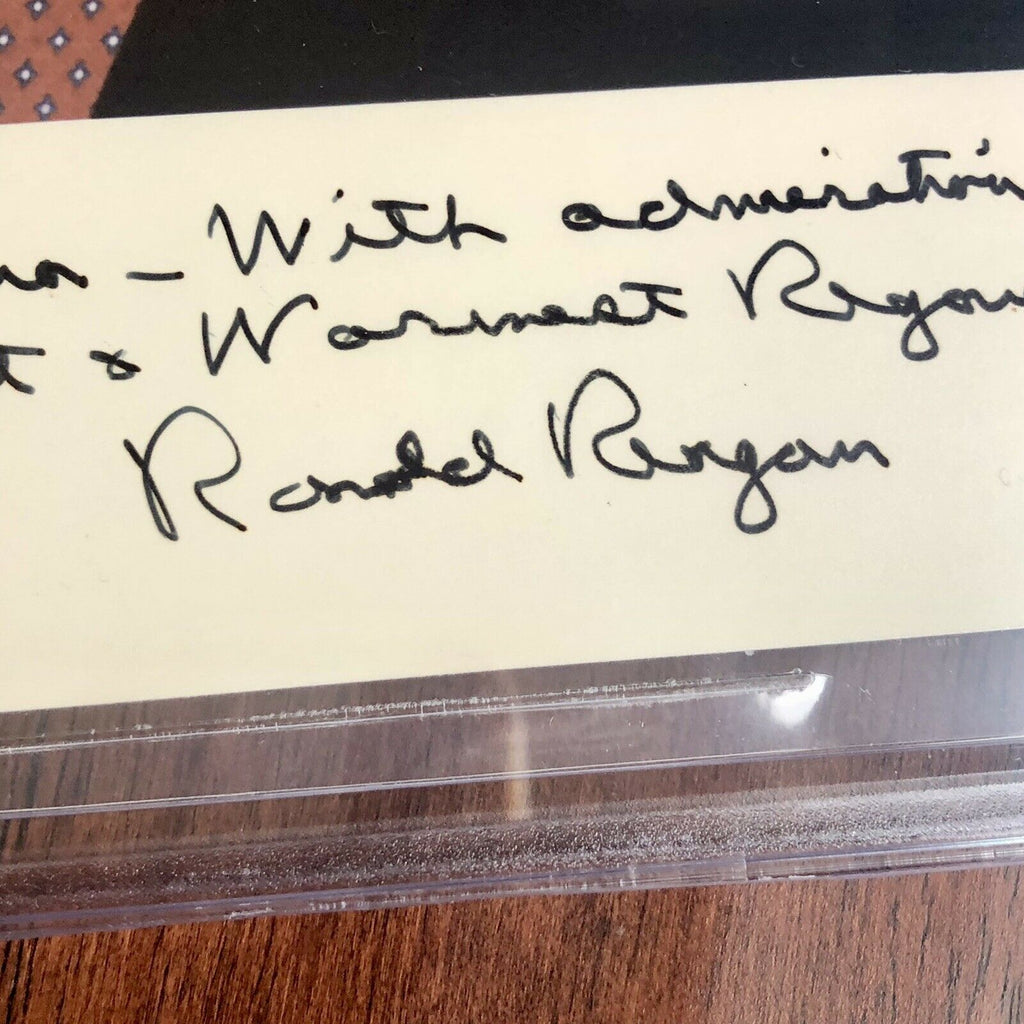 – With admiration
& Warmest Regar
Ronald Reagan